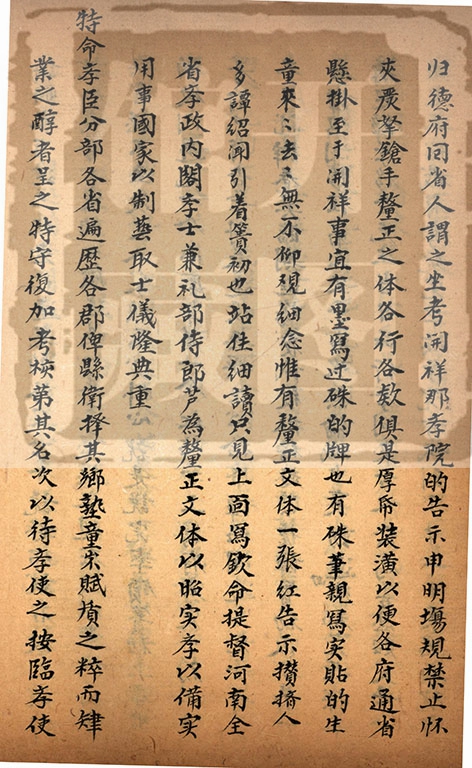 归德府回省人謂之坐考開祥那孝院的告示申明塲規禁止怀
夾传拏鎗手釐正之体各行各欵俱是厚帋装潢以便各府通省
懸掛至于開祥事宜有墨寫过硃的牌也有硃筆親寫实貼的生
童來〻去〻無不仰視細念惟有釐正文体一張紅告示攅搢人
多譚紹聞引着簣初也站住细讀只見上面寫欽命提督河南全
省孝政内閣孝士兼礼部侍郎芦為釐正文体以昭实孝以備实
用事國家以制藝取士儀隆典重
特命孝臣分部各省遍歴各郡俾縣衛擇其鄉塾童宋賦質之粹而肄
業之醇者呈之特守復加考核第其名次以待孝使之按臨孝使